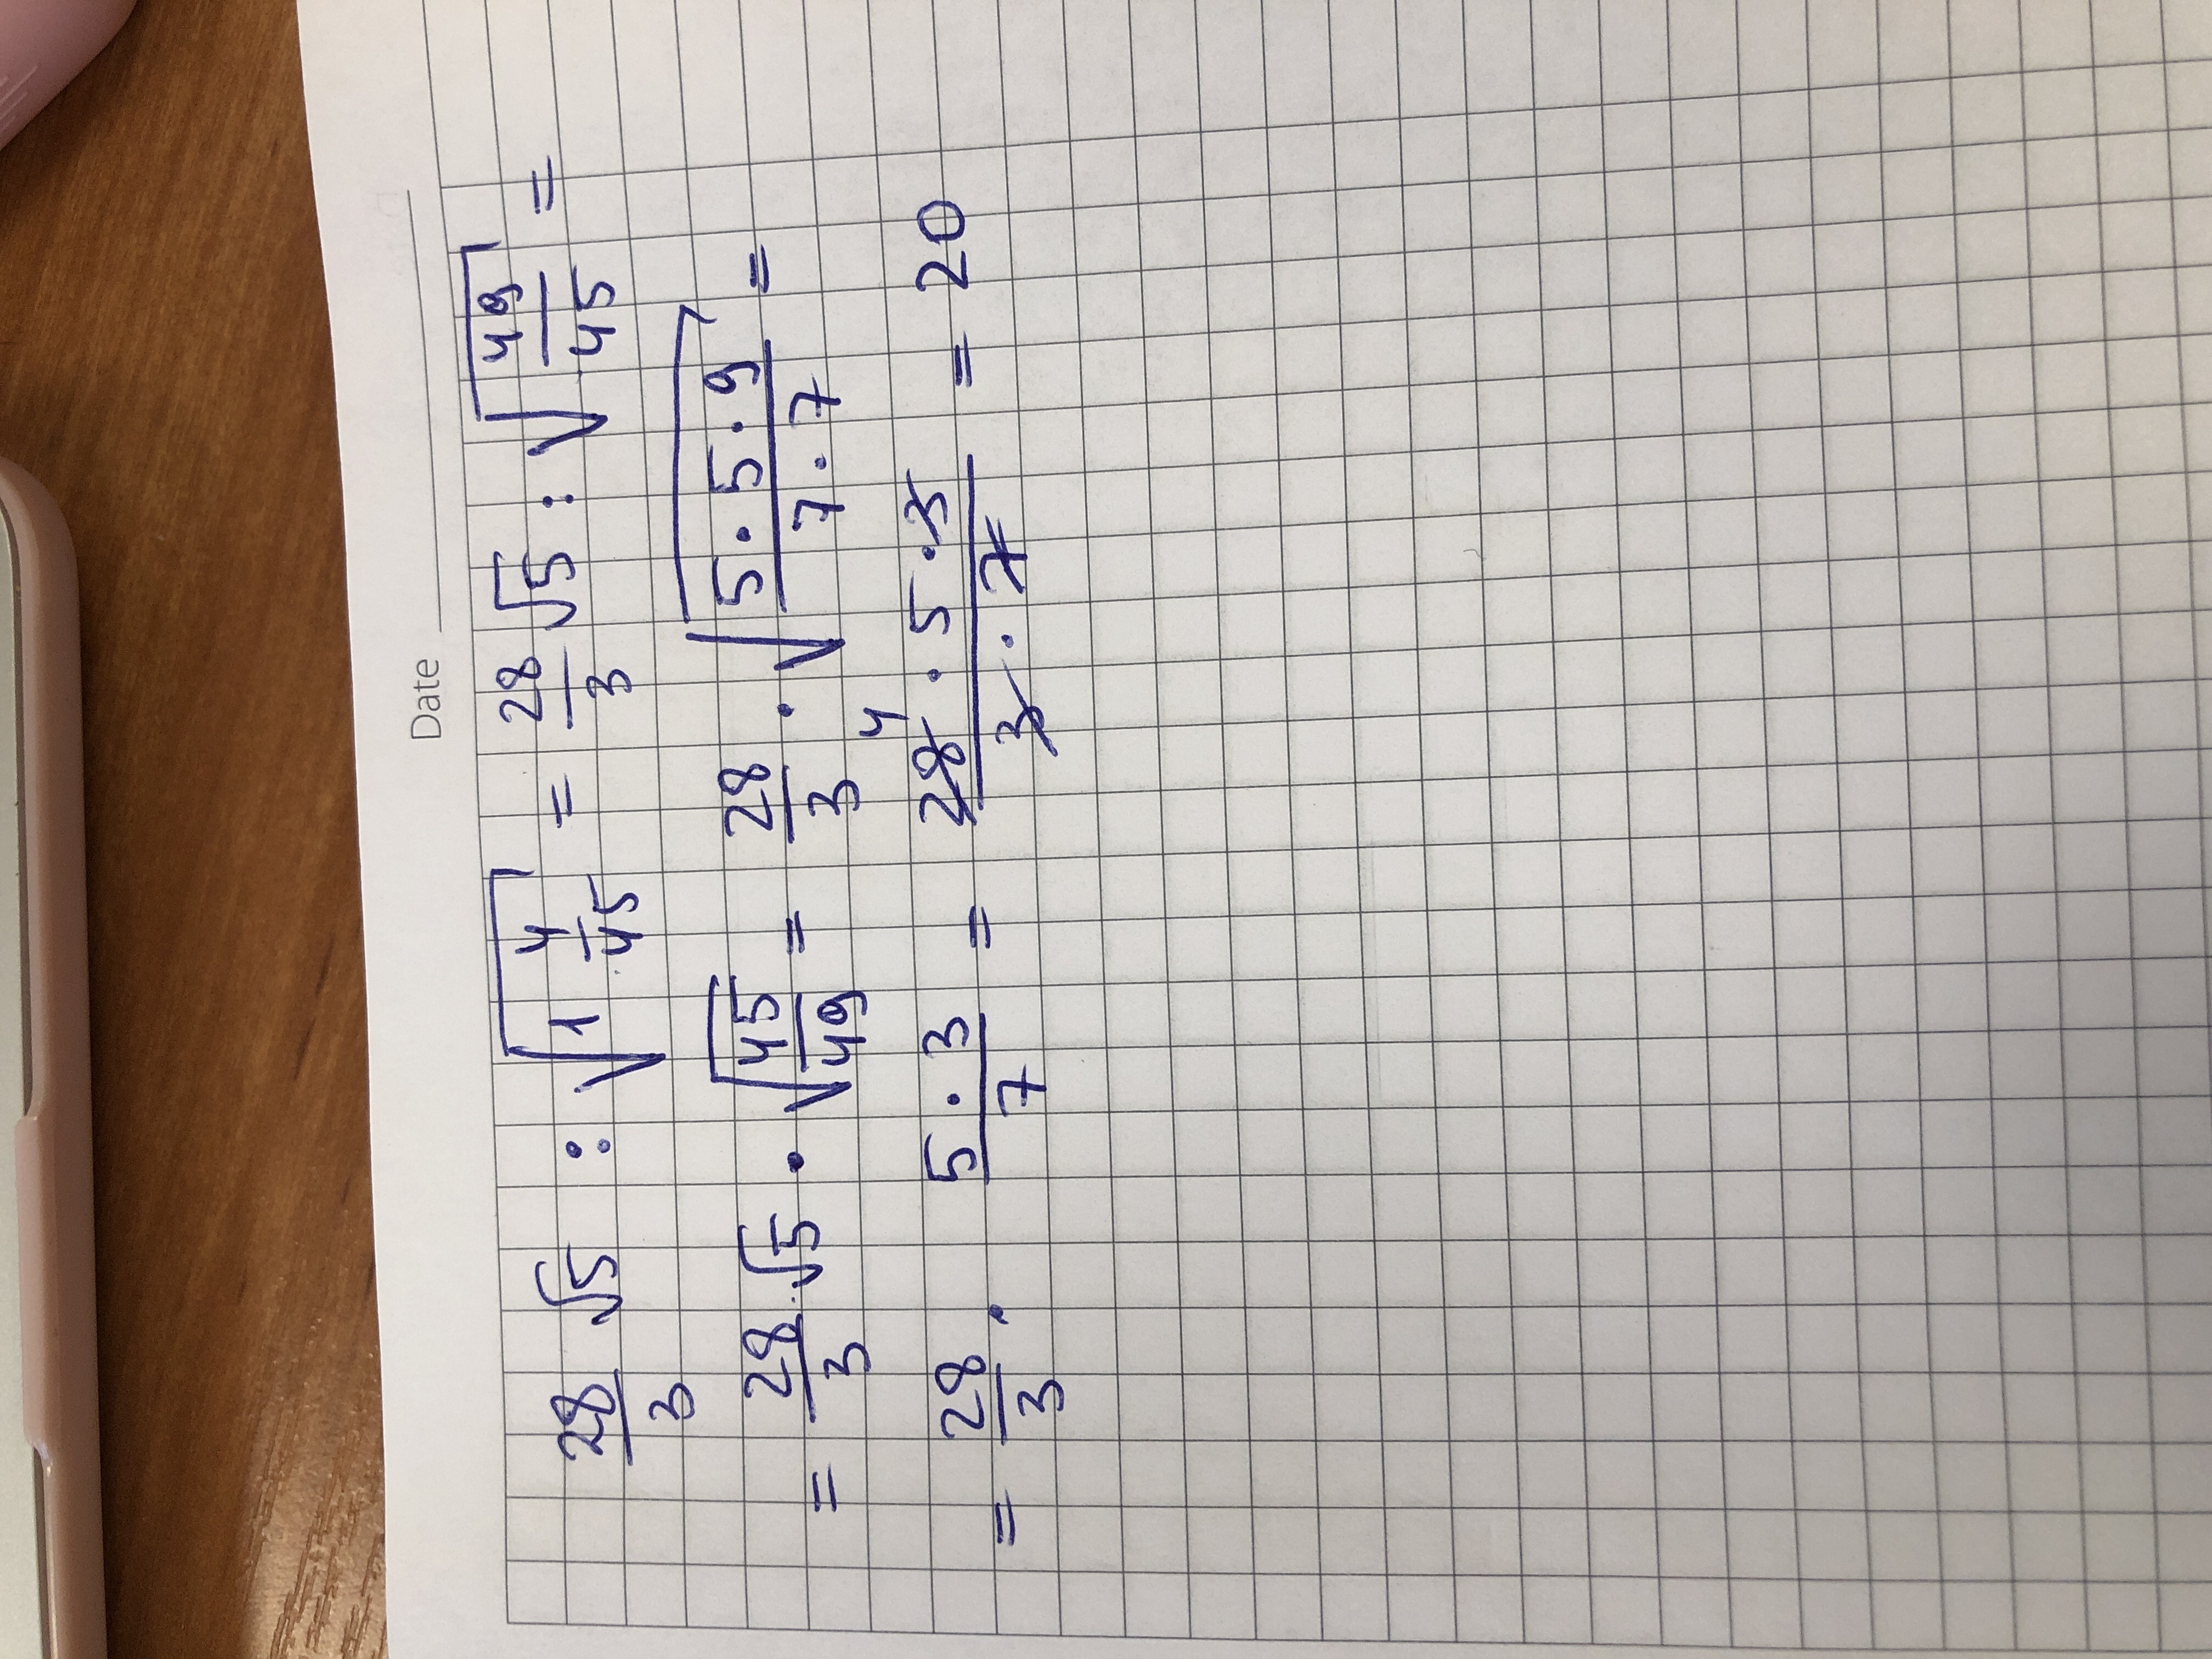 Date
28/3 √5 : √(1 4/45) = 28/3 √5 : √(49/45) =
= 28/3 · √5 · √(45/49) = 28/3 · √((5·5·9)/(7·7)) =
= 28/3 · (5·3)/7 = (28 4 · 5 · 3)/(3 · 7) = 20